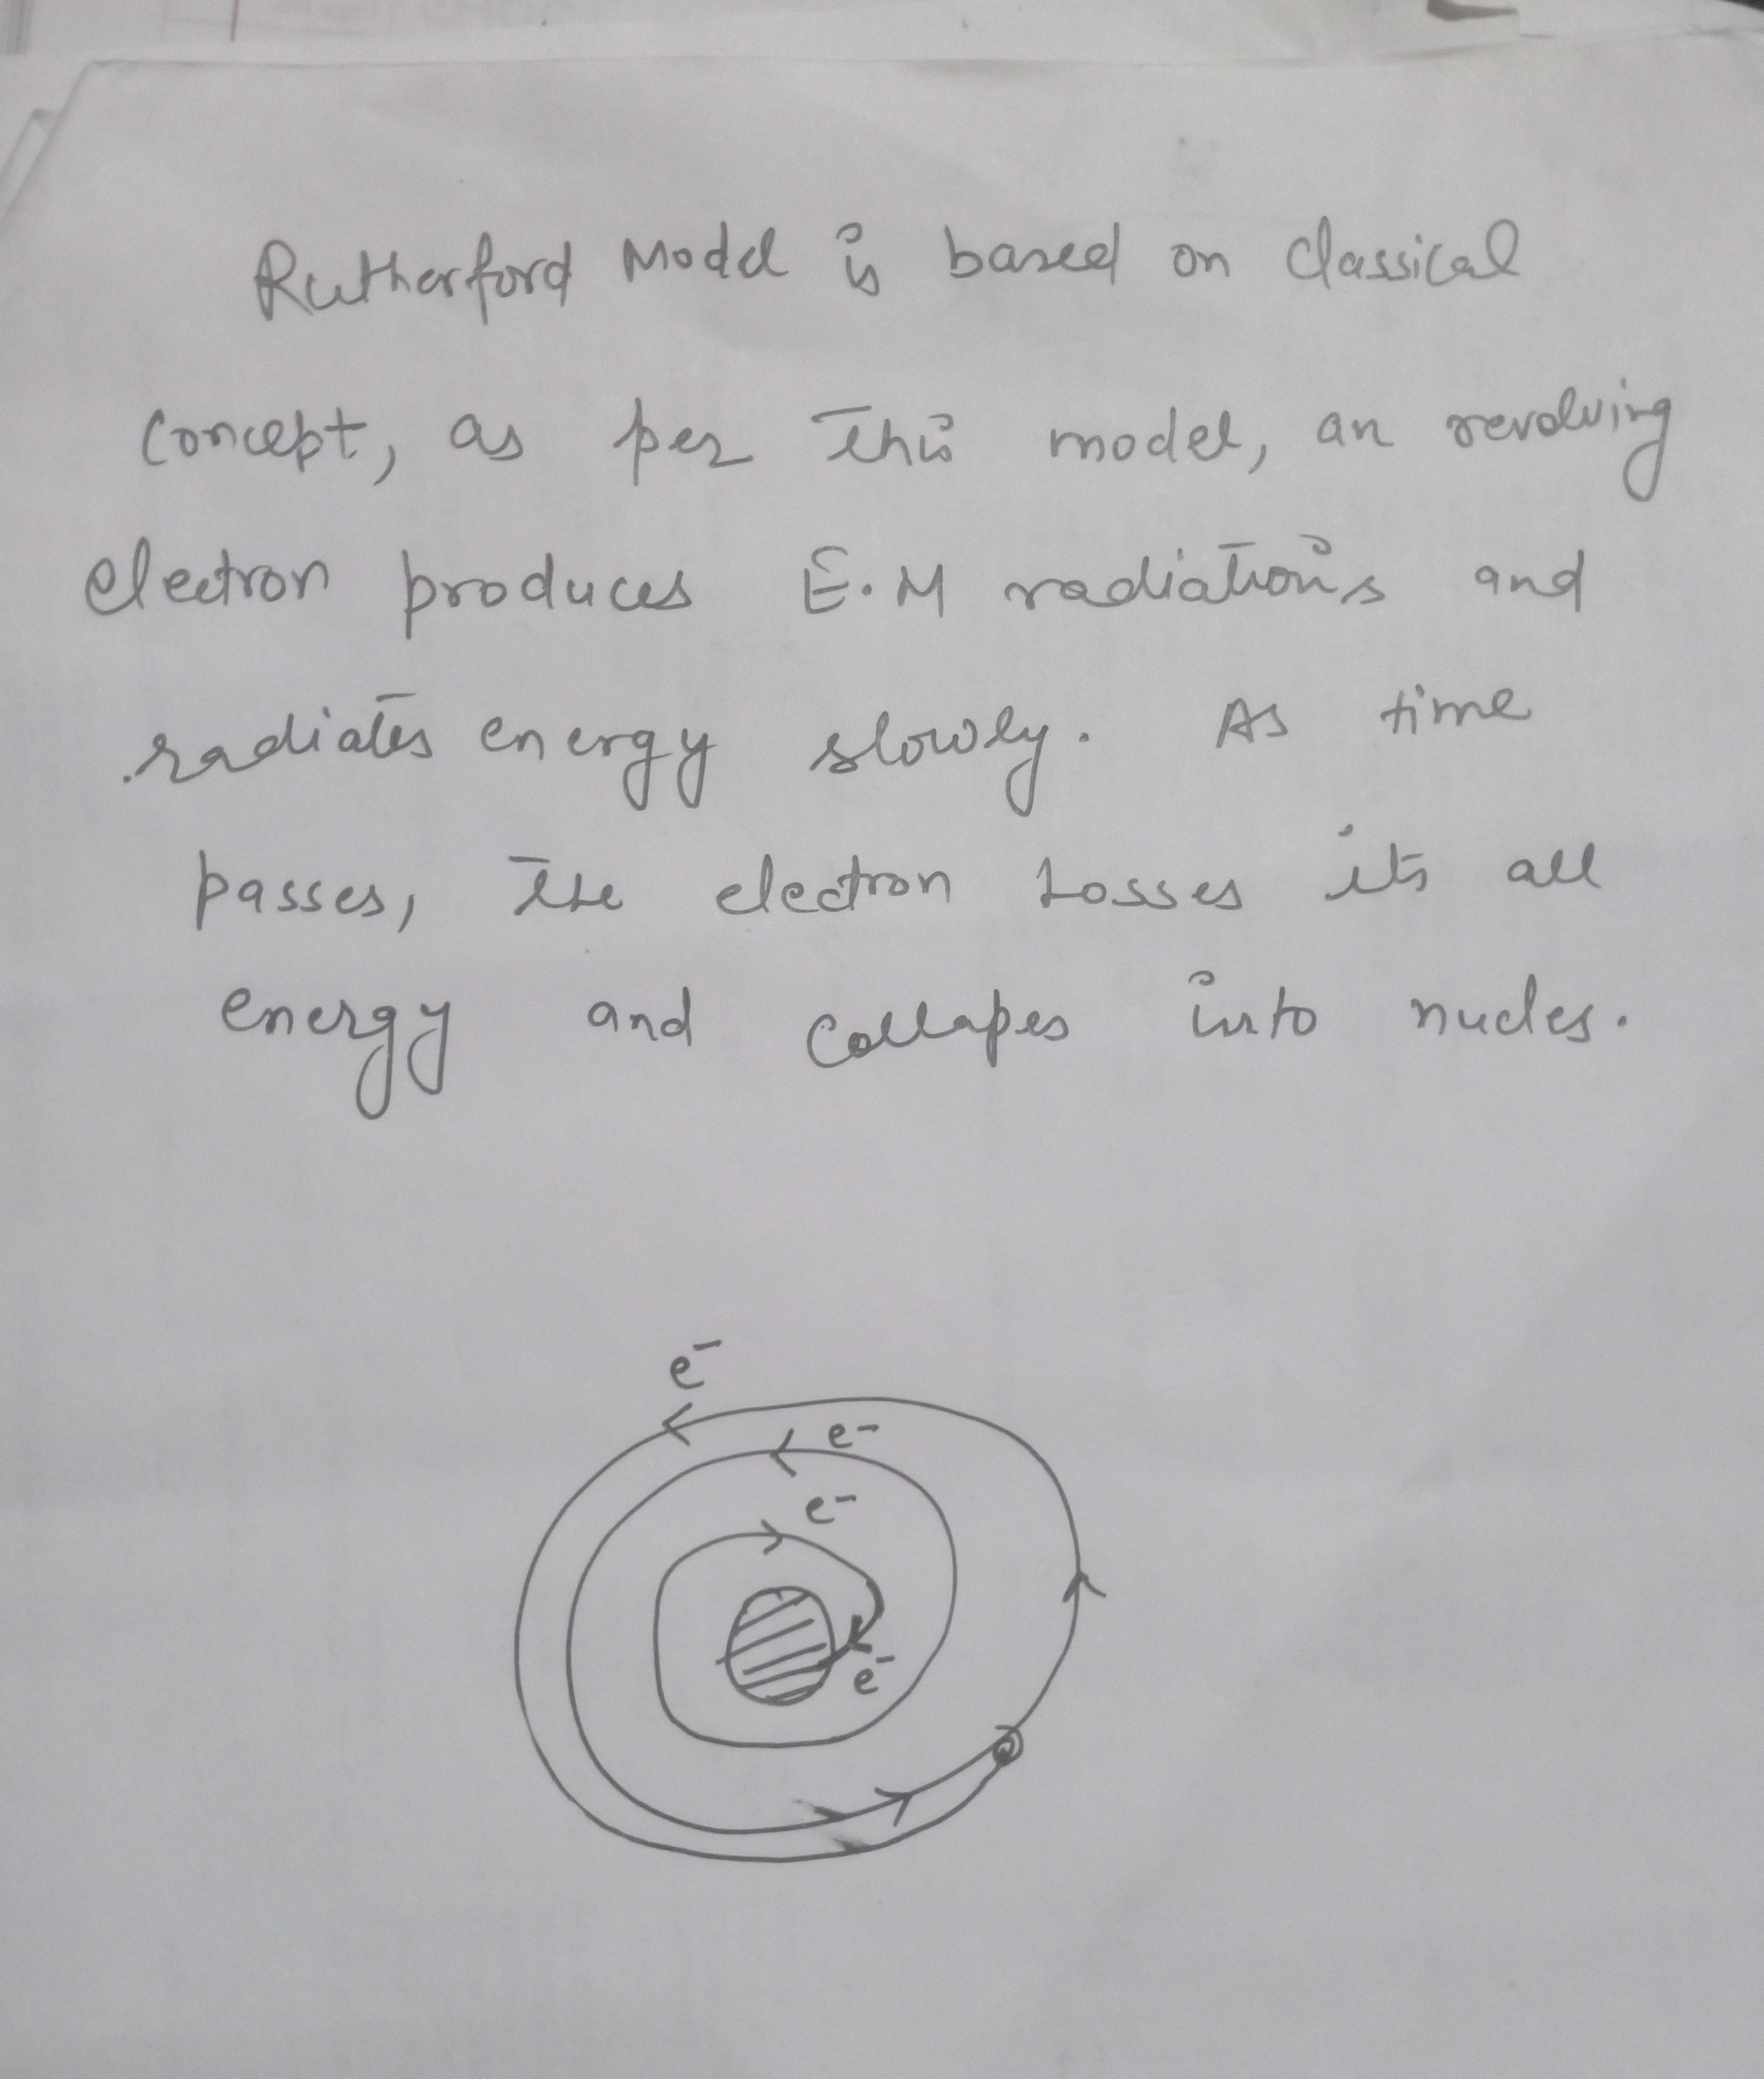 Rutherford Model is based on Classical
Concept, as per this model, an revolving
electron produces E.M radiations and
radiates energy slowly. As time
passes, the electron Losses its all
energy and Collapes into nucles.
e-
e-
e-
e-